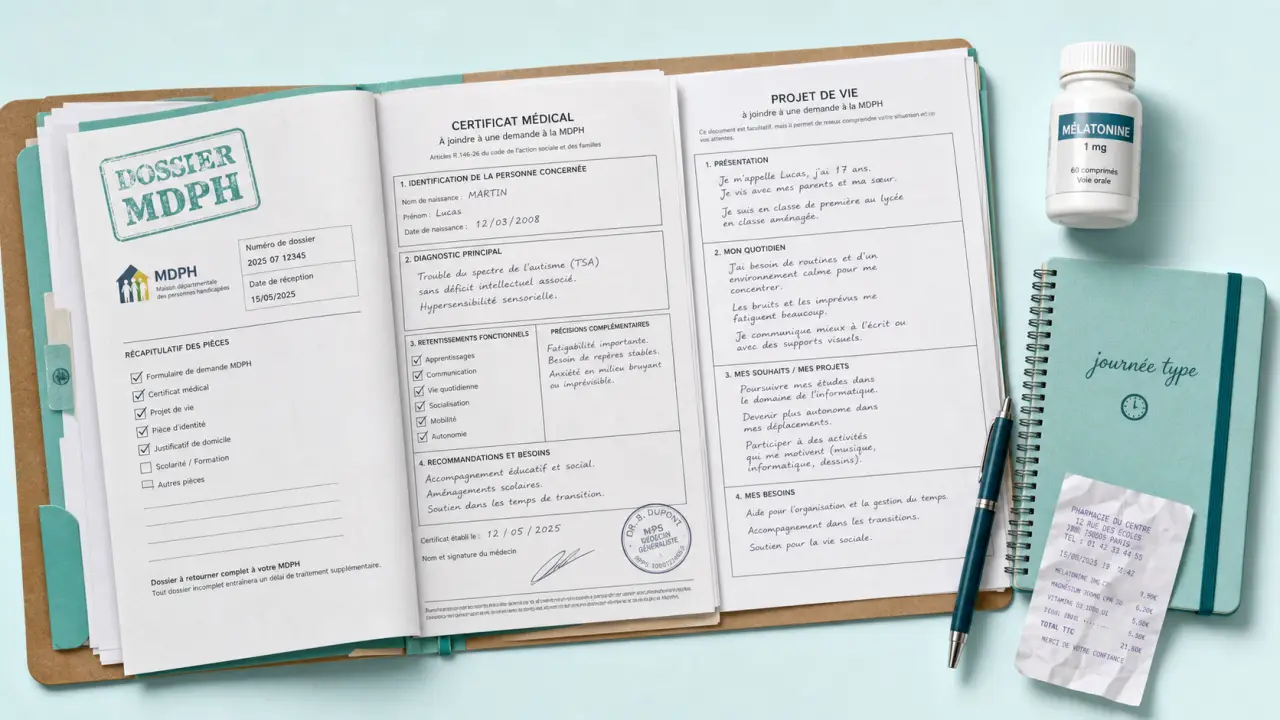 DOSSIER
MDPH
MDPH
Maison départementale
des personnes handicapées
Numéro de dossier
2025 07 12345
Date de réception
15/05/2025
RÉCAPITULATIF DES PIÈCES
Formulaire de demande MDPH
Certificat médical
Projet de vie
Pièce d'identité
Justificatif de domicile
Scolarité / Formation
Autres pièces
Dossier à retourner complet à votre MDPH
Tout dossier incomplet entraînera un délai de traitement supplémentaire.
CERTIFICAT MÉDICAL
À joindre à une demande à la MDPH
Articles R.146-26 du code de l'action sociale et des familles
1. IDENTIFICATION DE LA PERSONNE CONCERNÉE
Nom de naissance : MARTIN
Prénom : Lucas
Date de naissance : 12/03/2008
2. DIAGNOSTIC PRINCIPAL
Trouble du spectre de l'autisme (TSA)
sans déficit intellectuel associé.
Hypersensibilité sensorielle.
3. RETENTISSEMENTS FONCTIONNELS
Apprentissages
Communication
Vie quotidienne
Socialisation
Mobilité
Autonomie
PRÉCISIONS COMPLÉMENTAIRES
Fatigabilité importante.
Besoin de repères stables.
Anxiété en milieu bruyant
ou imprévisible.
4. RECOMMANDATIONS ET BESOINS
Accompagnement éducatif et social.
Aménagements scolaires.
Soutien dans les temps de transition.
Certificat établi le : 12 / 05 / 2025
Nom et signature du médecin
DR. B. DUPONT
MPS
MÉDECIN
GÉNÉRALISTE
PROJET DE VIE
à joindre à une demande à la MDPH
Ce document est facultatif, mais il permet de mieux comprendre votre situation et
vos attentes.
1. PRÉSENTATION
Je m'appelle Lucas, j'ai 17 ans.
Je vis avec mes parents et ma sœur.
Je suis en classe de première au lycée
en classe aménagée.
2. MON QUOTIDIEN
J'ai besoin de routines et d'un
environnement calme pour me
concentrer.
Les bruits et les imprévus me
fatiguent beaucoup.
Je communique mieux à l'écrit ou
avec des supports visuels.
3. MES SOUHAITS / MES PROJETS
Poursuivre mes études dans
le domaine de l'informatique.
Devenir plus autonome dans
mes déplacements.
Participer à des activités
qui me motivent (musique,
informatique, dessins).
4. MES BESOINS
Aide pour l'organisation et la gestion du temps.
Accompagnement dans les transitions.
Soutien pour la vie sociale.
MÉLATONINE
1 mg
60 comprimés
Voie orale
journée type
PHARMACIE DU CENTRE
12 RUE DES ÉCOLES
PARIS
TEL : 01 42 33 44 55
MÉLATONINE 9,90€
MAGNÉSIUM 6,20€
VITAMINE D3 5,50€
TOTAL TTC 21,60€
MERCI DE VOTRE CONFIANCE